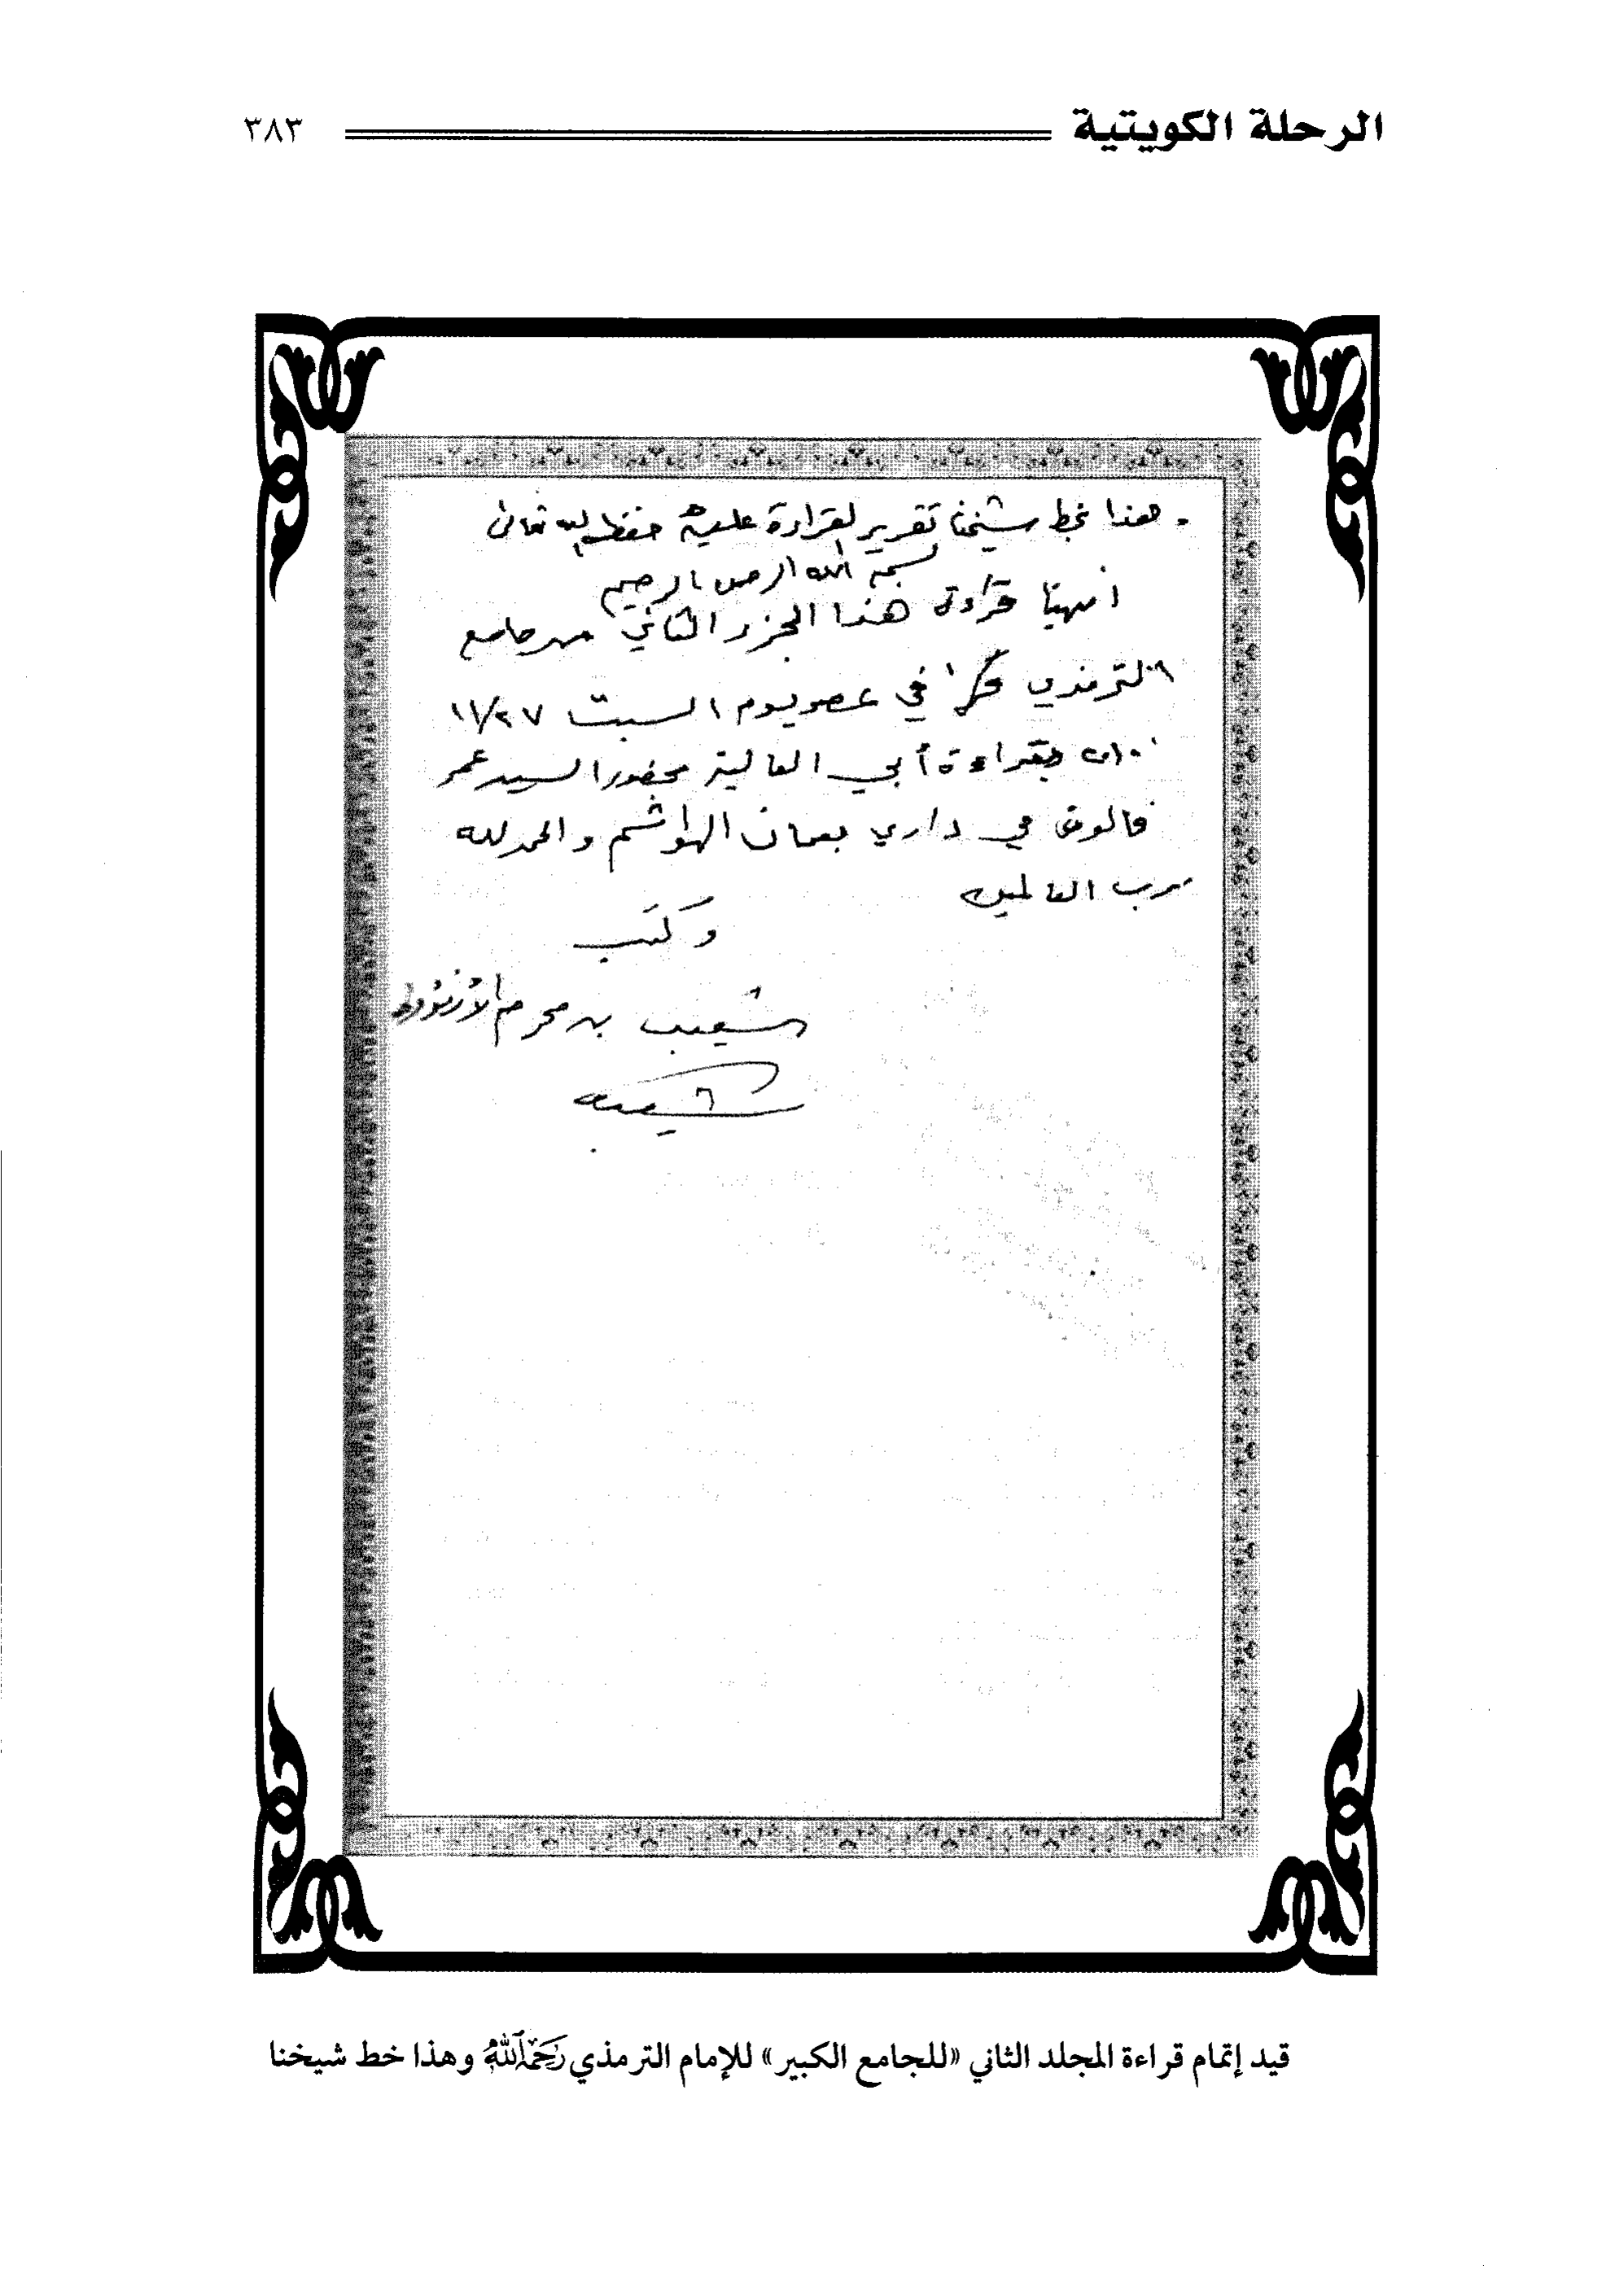 الرحلة الكويتية ٣٨٣
هذا بخط شيخنا تقرير لقراءة عليه حفظه الله تعالى
بسم الله الرحمن الرحيم
انتهينا قراءة هذا الجزء الثاني من جامع
الترمذي في عصر يوم السبت ١١/٢٧
بقراءة أبي العالية بحضور السيد عمر
في داري بعمان الهواشم والحمد لله
رب العالمين
وكتب
شعيب بن محرم الأرنؤوط
شعيب
قيد إتمام قراءة المجلد الثاني «للجامع الكبير» للإمام الترمذي رَحِمَهُ اللَّهُ وهذا خط شيخنا